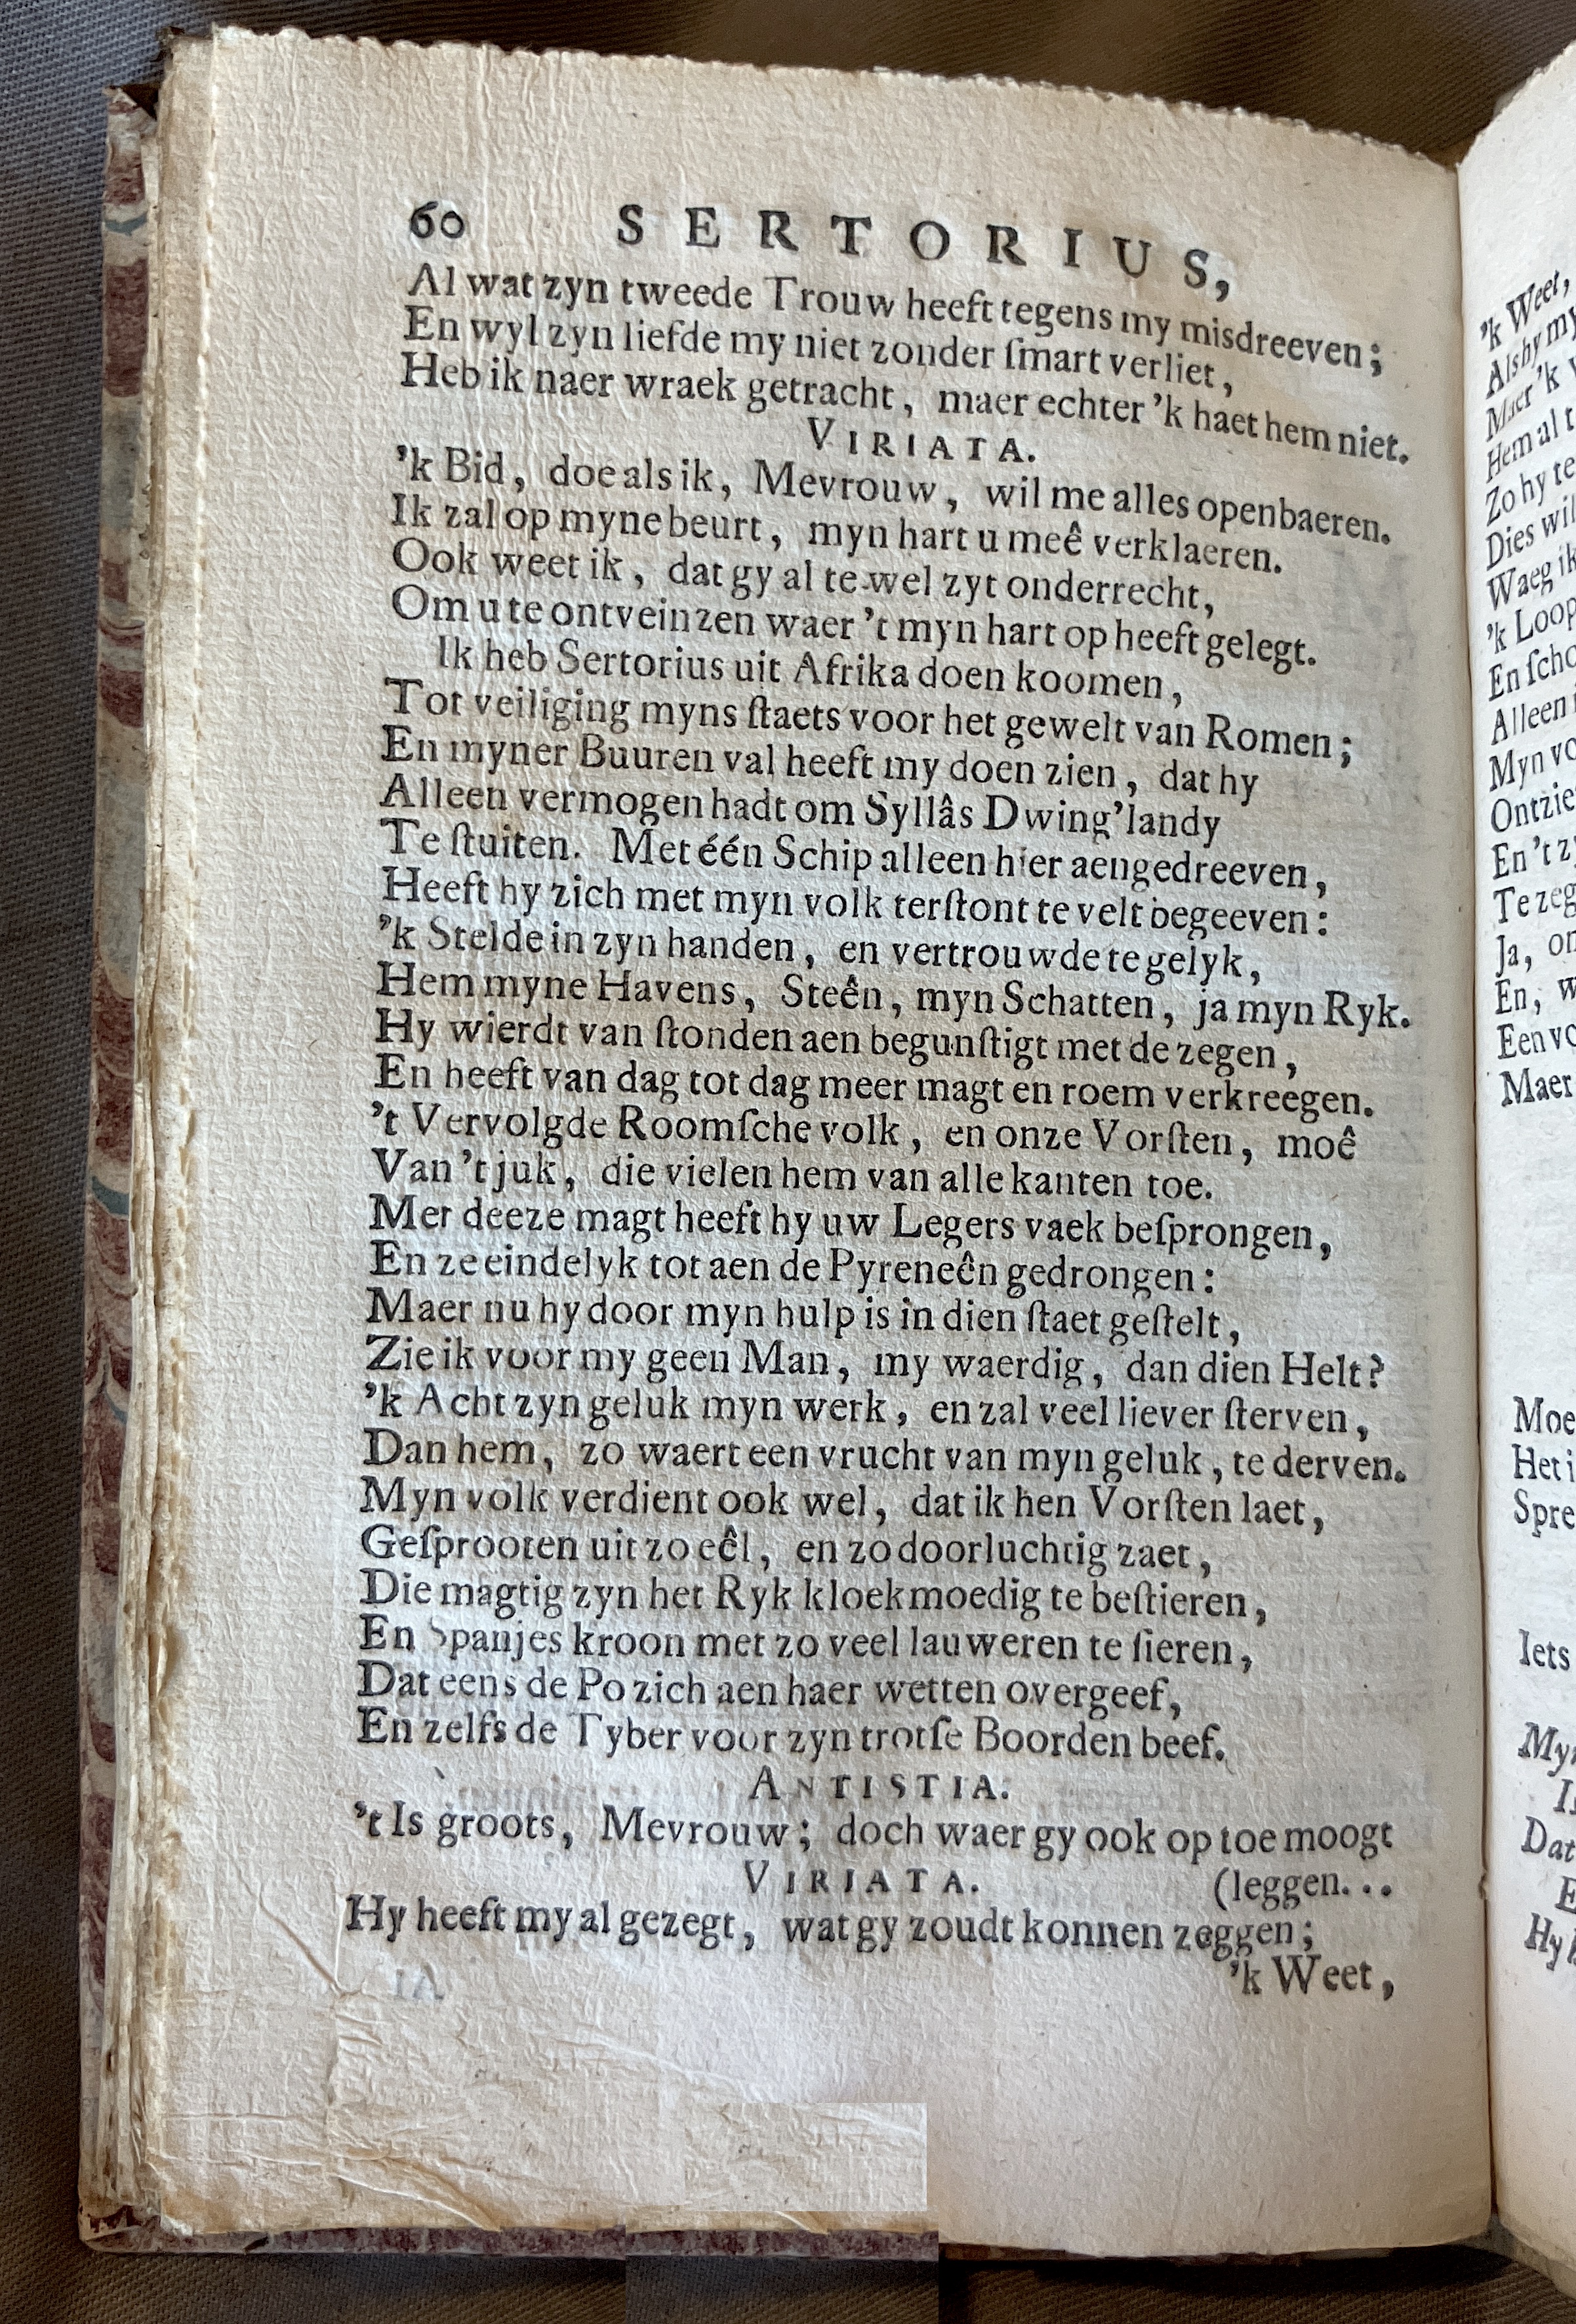 60 SERTORIUS,
Al wat zyn tweede Trouw heeft tegens my misdreeven;
En wyl zyn liefde my niet zonder ſmart verliet,
Heb ik naer wraek getracht, maer echter 'k haet hem niet.
VIRIATA.
'k Bid, doe als ik, Mevrouw, wil me alles openbaeren.
Ik zal op myne beurt, myn hart u meê verklaeren.
Ook weet ik, dat gy al te wel zyt onderrecht,
Om u te ontveinzen waer 't myn hart op heeft gelegt.
Ik heb Sertorius uit Afrika doen koomen,
Tot veiliging myns ſtaets voor het gewelt van Romen;
En myner Buuren val heeft my doen zien, dat hy
Alleen vermogen hadt om Syllâs Dwing'landy
Te ſtuiten. Met één Schip alleen hier aengedreeven,
Heeft hy zich met myn volk terſtont te velt begeeven:
'k Stelde in zyn handen, en vertrouwde te gelyk,
Hem myne Havens, Steên, myn Schatten, ja myn Ryk.
Hy wierdt van ſtonden aen begunſtigt met de zegen,
En heeft van dag tot dag meer magt en roem verkreegen.
't Vervolgde Roomſche volk, en onze Vorſten, moê
Van 't juk, die vielen hem van alle kanten toe.
Met deeze magt heeft hy uw Legers vaek beſprongen,
En ze eindelyk tot aen de Pyreneên gedrongen:
Maer nu hy door myn hulp is in dien ſtaet geſtelt,
Zie ik voor my geen Man, my waerdig, dan dien Helt?
'k Acht zyn geluk myn werk, en zal veel liever ſterven,
Dan hem, zo waert een vrucht van myn geluk, te derven.
Myn volk verdient ook wel, dat ik hen Vorſten laet,
Geſprooten uit zo eêl, en zo doorluchtig zaet,
Die magtig zyn het Ryk kloekmoedig te beſtieren,
En Spanjes kroon met zo veel lauweren te ſieren,
Dat eens de Po zich aen haer wetten overgeef,
En zelfs de Tyber voor zyn trotſe Boorden beef.
ANTISTIA.
't Is groots, Mevrouw; doch waer gy ook op toe moogt
VIRIATA. (leggen...
Hy heeft my al gezegt, wat gy zoudt konnen zeggen;
'k Weet,
'k Weet,
Als hy my
Maer 'k
Hem al t
Zo hy te
Dies wil
Waeg ik
'k Loop
En ſcho
Alleen
Myn vo
Ontzie
En 't z
Te zeg
Ja, on
En, w
Een vo
Maer
Moe
Het i
Spre
Iets
Myn
Dat
Hy